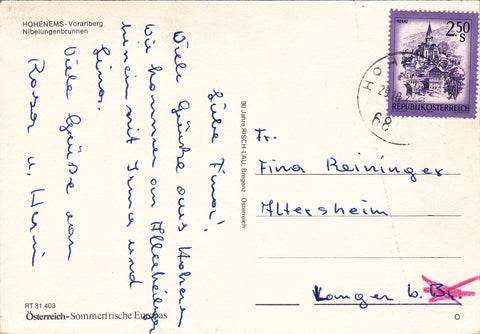 HOHENEMS - Vorarlberg
Nibelungenbrunnen
Liebe Fina!
Viele Grüße aus Hohenems
Wir kommen an Allerheiligen
mit Irma und
Viele Grüße von
Rosa u.
90 Jahre RISCH-LAU, Bregenz - Österreich
MURAU
2.50
S
REPUBLIK ÖSTERREICH
HOHEN
68
Fr.
Fina Reininger
Altersheim
Langen b. Br.
RT 31.403
Österreich - Sommerfrische Europas